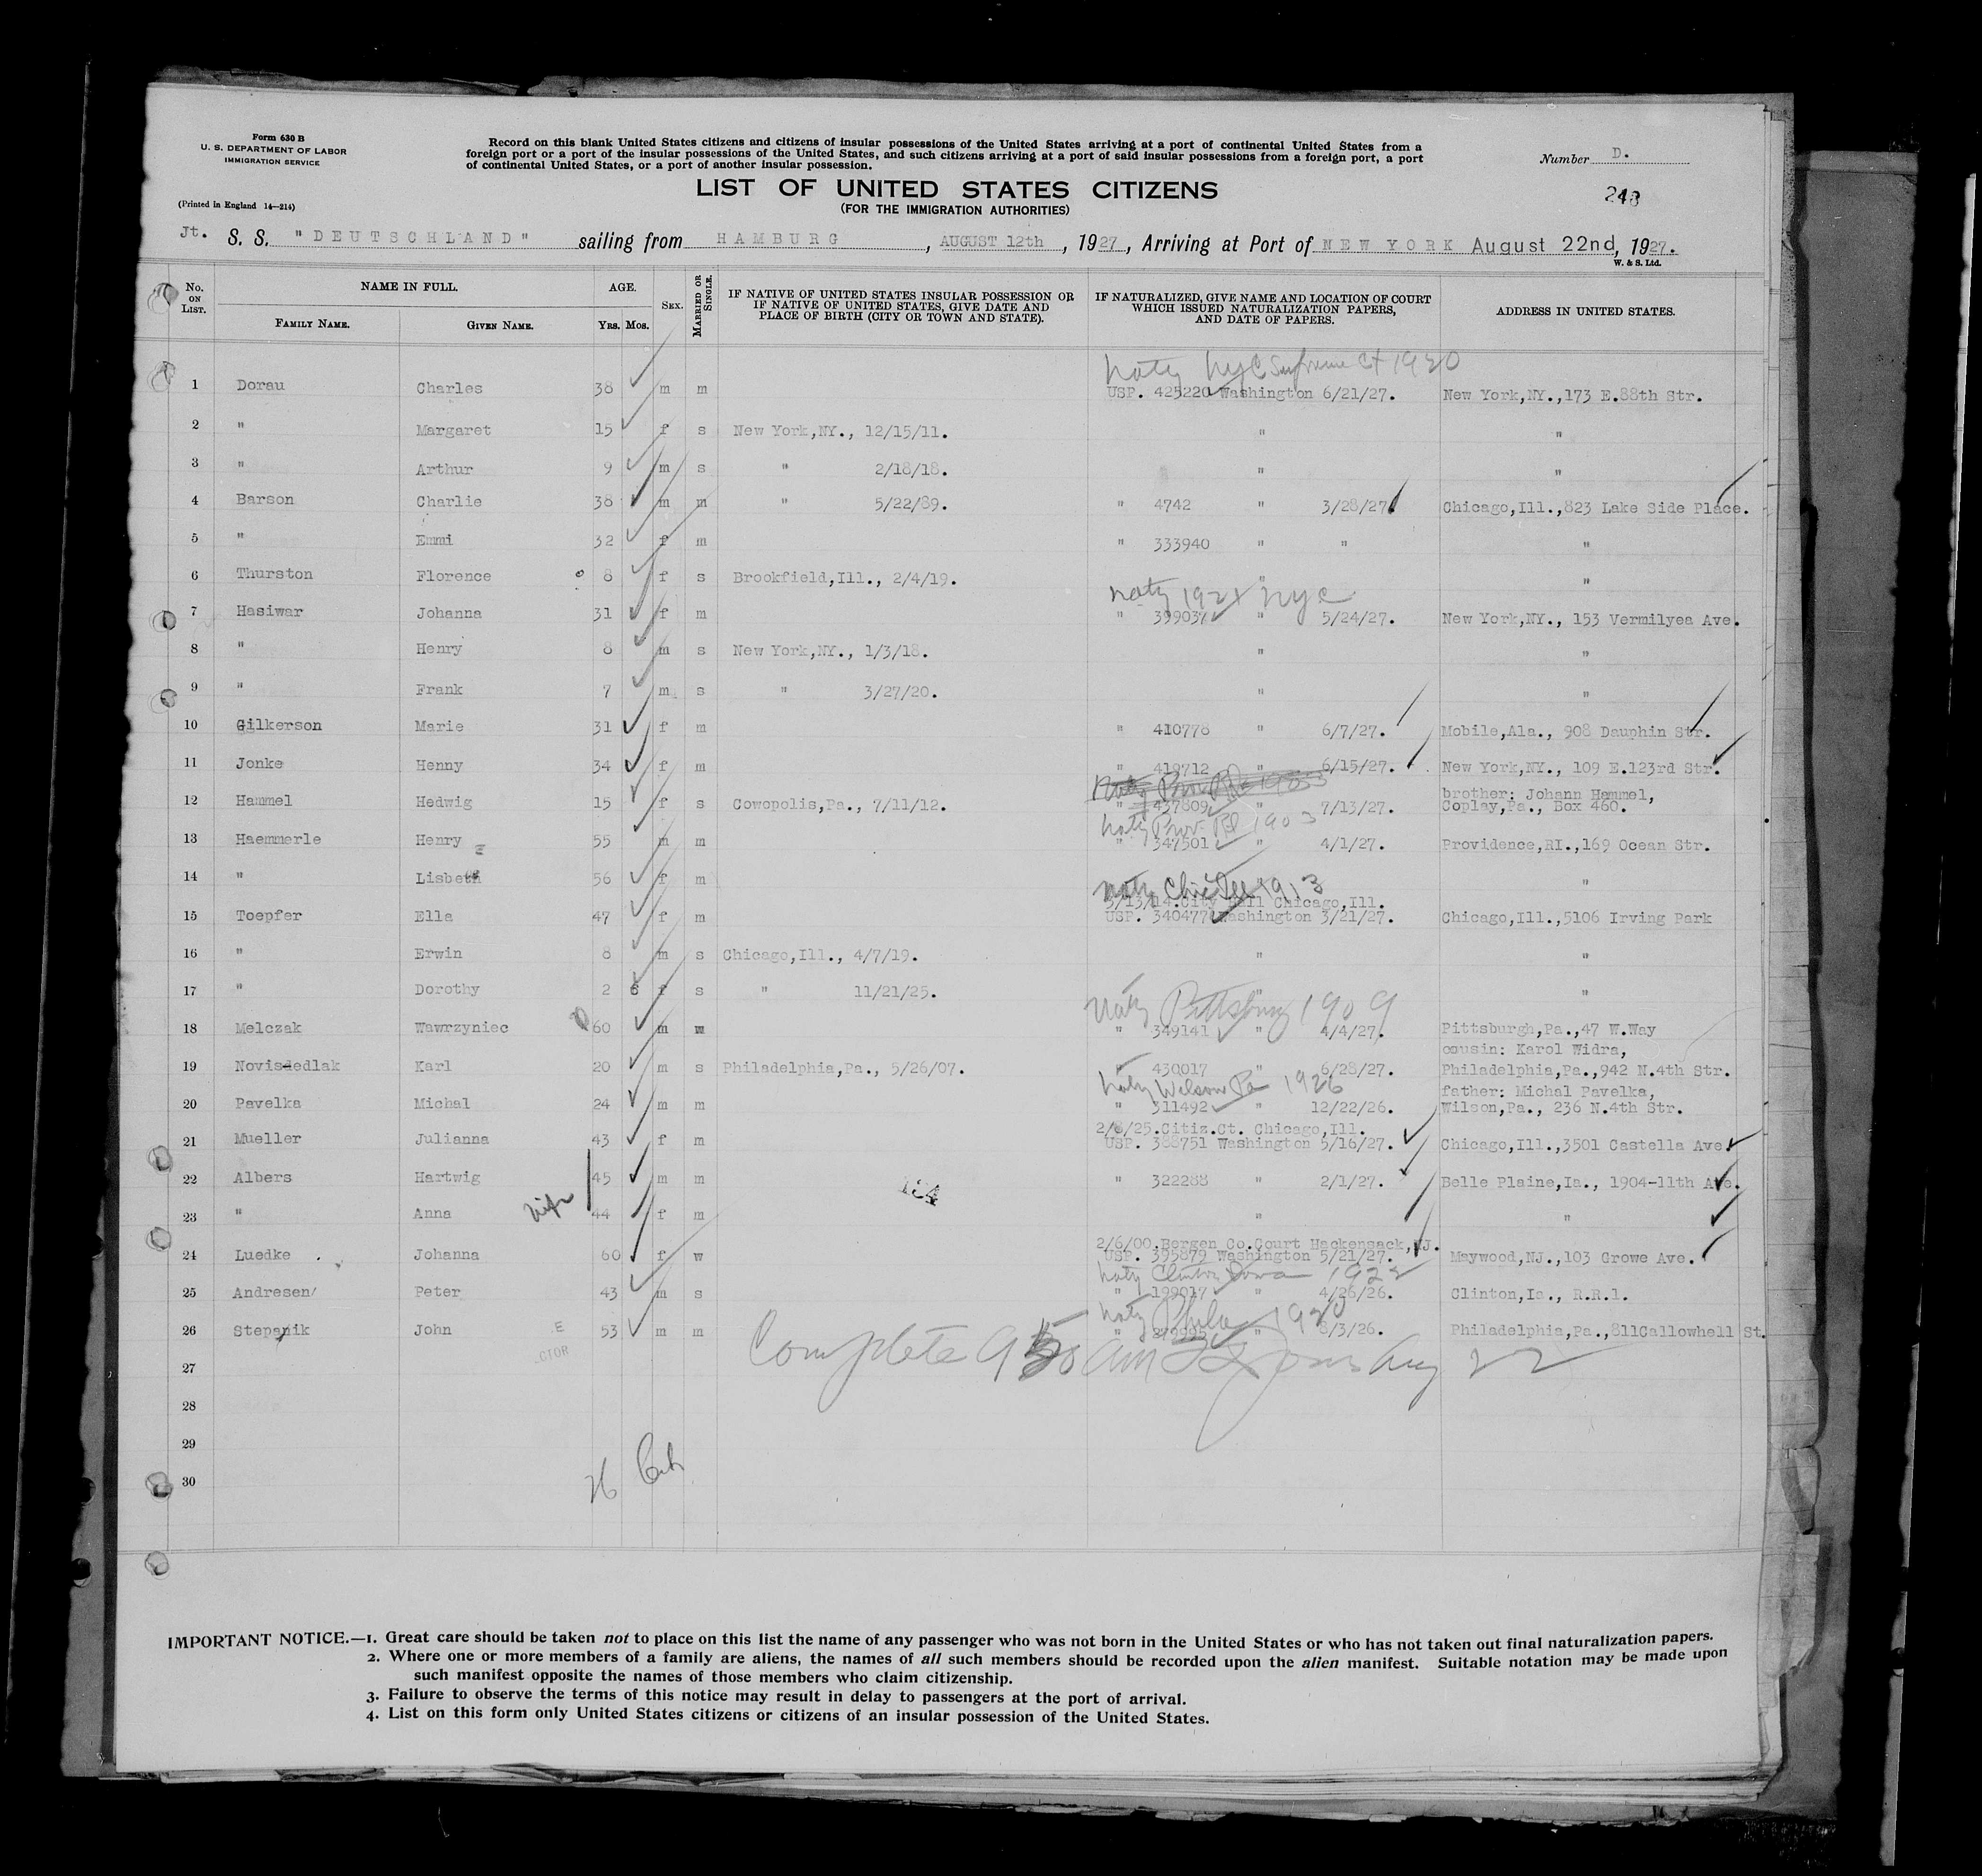 Form 630 B
U. S. DEPARTMENT OF LABOR
IMMIGRATION SERVICE
(Printed in England 14—214)
Record on this blank United States citizens and citizens of insular possessions of the United States arriving at a port of continental United States from a
foreign port or a port of the insular possessions of the United States, and such citizens arriving at a port of said insular possessions from a foreign port, a port
of continental United States, or a port of another insular possession.
Number D.
248
LIST OF UNITED STATES CITIZENS
(FOR THE IMMIGRATION AUTHORITIES)
Jt. S. S. "DEUTSCHLAND" sailing from HAMBURG, AUGUST 12th, 1927, Arriving at Port of NEW YORK August 22nd, 1927.
W. & S. Ltd.
No. ON LIST. NAME IN FULL. AGE. SEX. MARRIED OR SINGLE. IF NATIVE OF UNITED STATES INSULAR POSSESSION OR IF NATIVE OF UNITED STATES, GIVE DATE AND PLACE OF BIRTH (CITY OR TOWN AND STATE). IF NATURALIZED, GIVE NAME AND LOCATION OF COURT WHICH ISSUED NATURALIZATION PAPERS, AND DATE OF PAPERS. ADDRESS IN UNITED STATES.
FAMILY NAME. GIVEN NAME. Yrs. Mos.
Natz NYC Supreme Ct 1920
1 Dorau Charles 38 m m USP. 425220 Washington 6/21/27. New York,NY.,173 E.88th Str.
2 " Margaret 15 f s New York,NY., 12/15/11. " "
3 " Arthur 9 m s " 2/18/18. " "
4 Barson Charlie 38 m m " 5/22/89. " 4742 " 3/28/27. Chicago,Ill.,823 Lake Side Place.
5 " Emmi 32 f m " 333940 " " "
6 Thurston Florence 8 f s Brookfield,Ill., 2/4/19. " "
Natz 1921 NYC
7 Hasiwar Johanna 31 f m " 399037 " 5/24/27. New York,NY., 153 Vermilyea Ave.
8 " Henry 8 m s New York,NY., 1/3/18. " "
9 " Frank 7 m s " 3/27/20. " "
10 Gilkerson Marie 31 f m " 410778 " 6/7/27. Mobile,Ala., 908 Dauphin Str.
11 Jonke Henny 34 f m " 419712 " 6/15/27. New York,NY., 109 E.123rd Str.
brother: Johann Hammel,
12 Hammel Hedwig 15 f s Cowopolis,Pa., 7/11/12. " 437809 " 7/13/27. Coplay,Pa., Box 460.
Natz Prov RI 1903
13 Haemmerle Henry 55 m m " 347501 " 4/1/27. Providence,RI.,169 Ocean Str.
14 " Lisbeth 56 f m " "
Natz Chic Ill 1913
3/13/14.City Hall Chicago,Ill.
15 Toepfer Ella 47 f m USP. 340477 Washington 3/21/27. Chicago,Ill.,5106 Irving Park
16 " Erwin 8 m s Chicago,Ill., 4/7/19. " "
17 " Dorothy 2 8 f s " 11/21/25. " "
Natz Pittsburg 1909
18 Melczak Wawrzyniec 60 m w " 349141 " 4/4/27. Pittsburgh,Pa.,47 W.Way
cousin: Karol Widra,
19 Novisedlak Karl 20 m s Philadelphia,Pa., 5/26/07. " 430017 " 6/28/27. Philadelphia,Pa.,942 N.4th Str.
Natz Wilson Pa 1926 father: Michal Pavelka,
20 Pavelka Michal 24 m m " 311492 " 12/22/26. Wilson,Pa., 236 N.4th Str.
2/6/25.Citiz.Ct. Chicago,Ill.
21 Mueller Julianna 43 f m USP. 388751 Washington 5/16/27. Chicago,Ill.,3501 Castella Ave.
22 Albers Hartwig 45 m m " 322288 " 2/1/27. Belle Plaine,Ia., 1904-11th Ave.
134
23 " Anna wife 44 f m " "
2/6/00.Bergen Co.Court Hackensack,NJ.
24 Luedke Johanna 60 f w USP. 395879 Washington 5/21/27. Maywood,NJ.,103 Growe Ave.
Natz Clinton Iowa 1922
25 Andresen Peter 43 m s " 199017 " 4/26/26. Clinton,Ia., R.R.1.
Natz Phila 1920
26 Stepanik John 53 m m " " 8/3/26. Philadelphia,Pa.,811Callowhell St.
Complete 950 am Aug 22
27
28
29
30
26
IMPORTANT NOTICE.—1. Great care should be taken not to place on this list the name of any passenger who was not born in the United States or who has not taken out final naturalization papers.
2. Where one or more members of a family are aliens, the names of all such members should be recorded upon the alien manifest. Suitable notation may be made upon
such manifest opposite the names of those members who claim citizenship.
3. Failure to observe the terms of this notice may result in delay to passengers at the port of arrival.
4. List on this form only United States citizens or citizens of an insular possession of the United States.